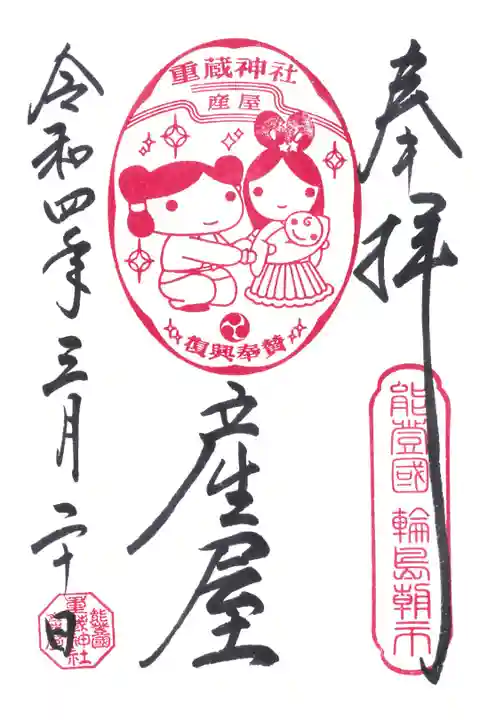 奉拝
能登國 輪島朝市
重蔵神社
産屋
復興奉賛
産屋
令和四年三月二十日
能登國
重蔵神社
産屋